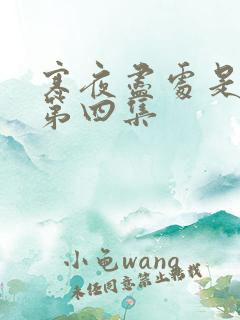 寒夜盡處是
第四集
小龟wang
未经同意禁止转载